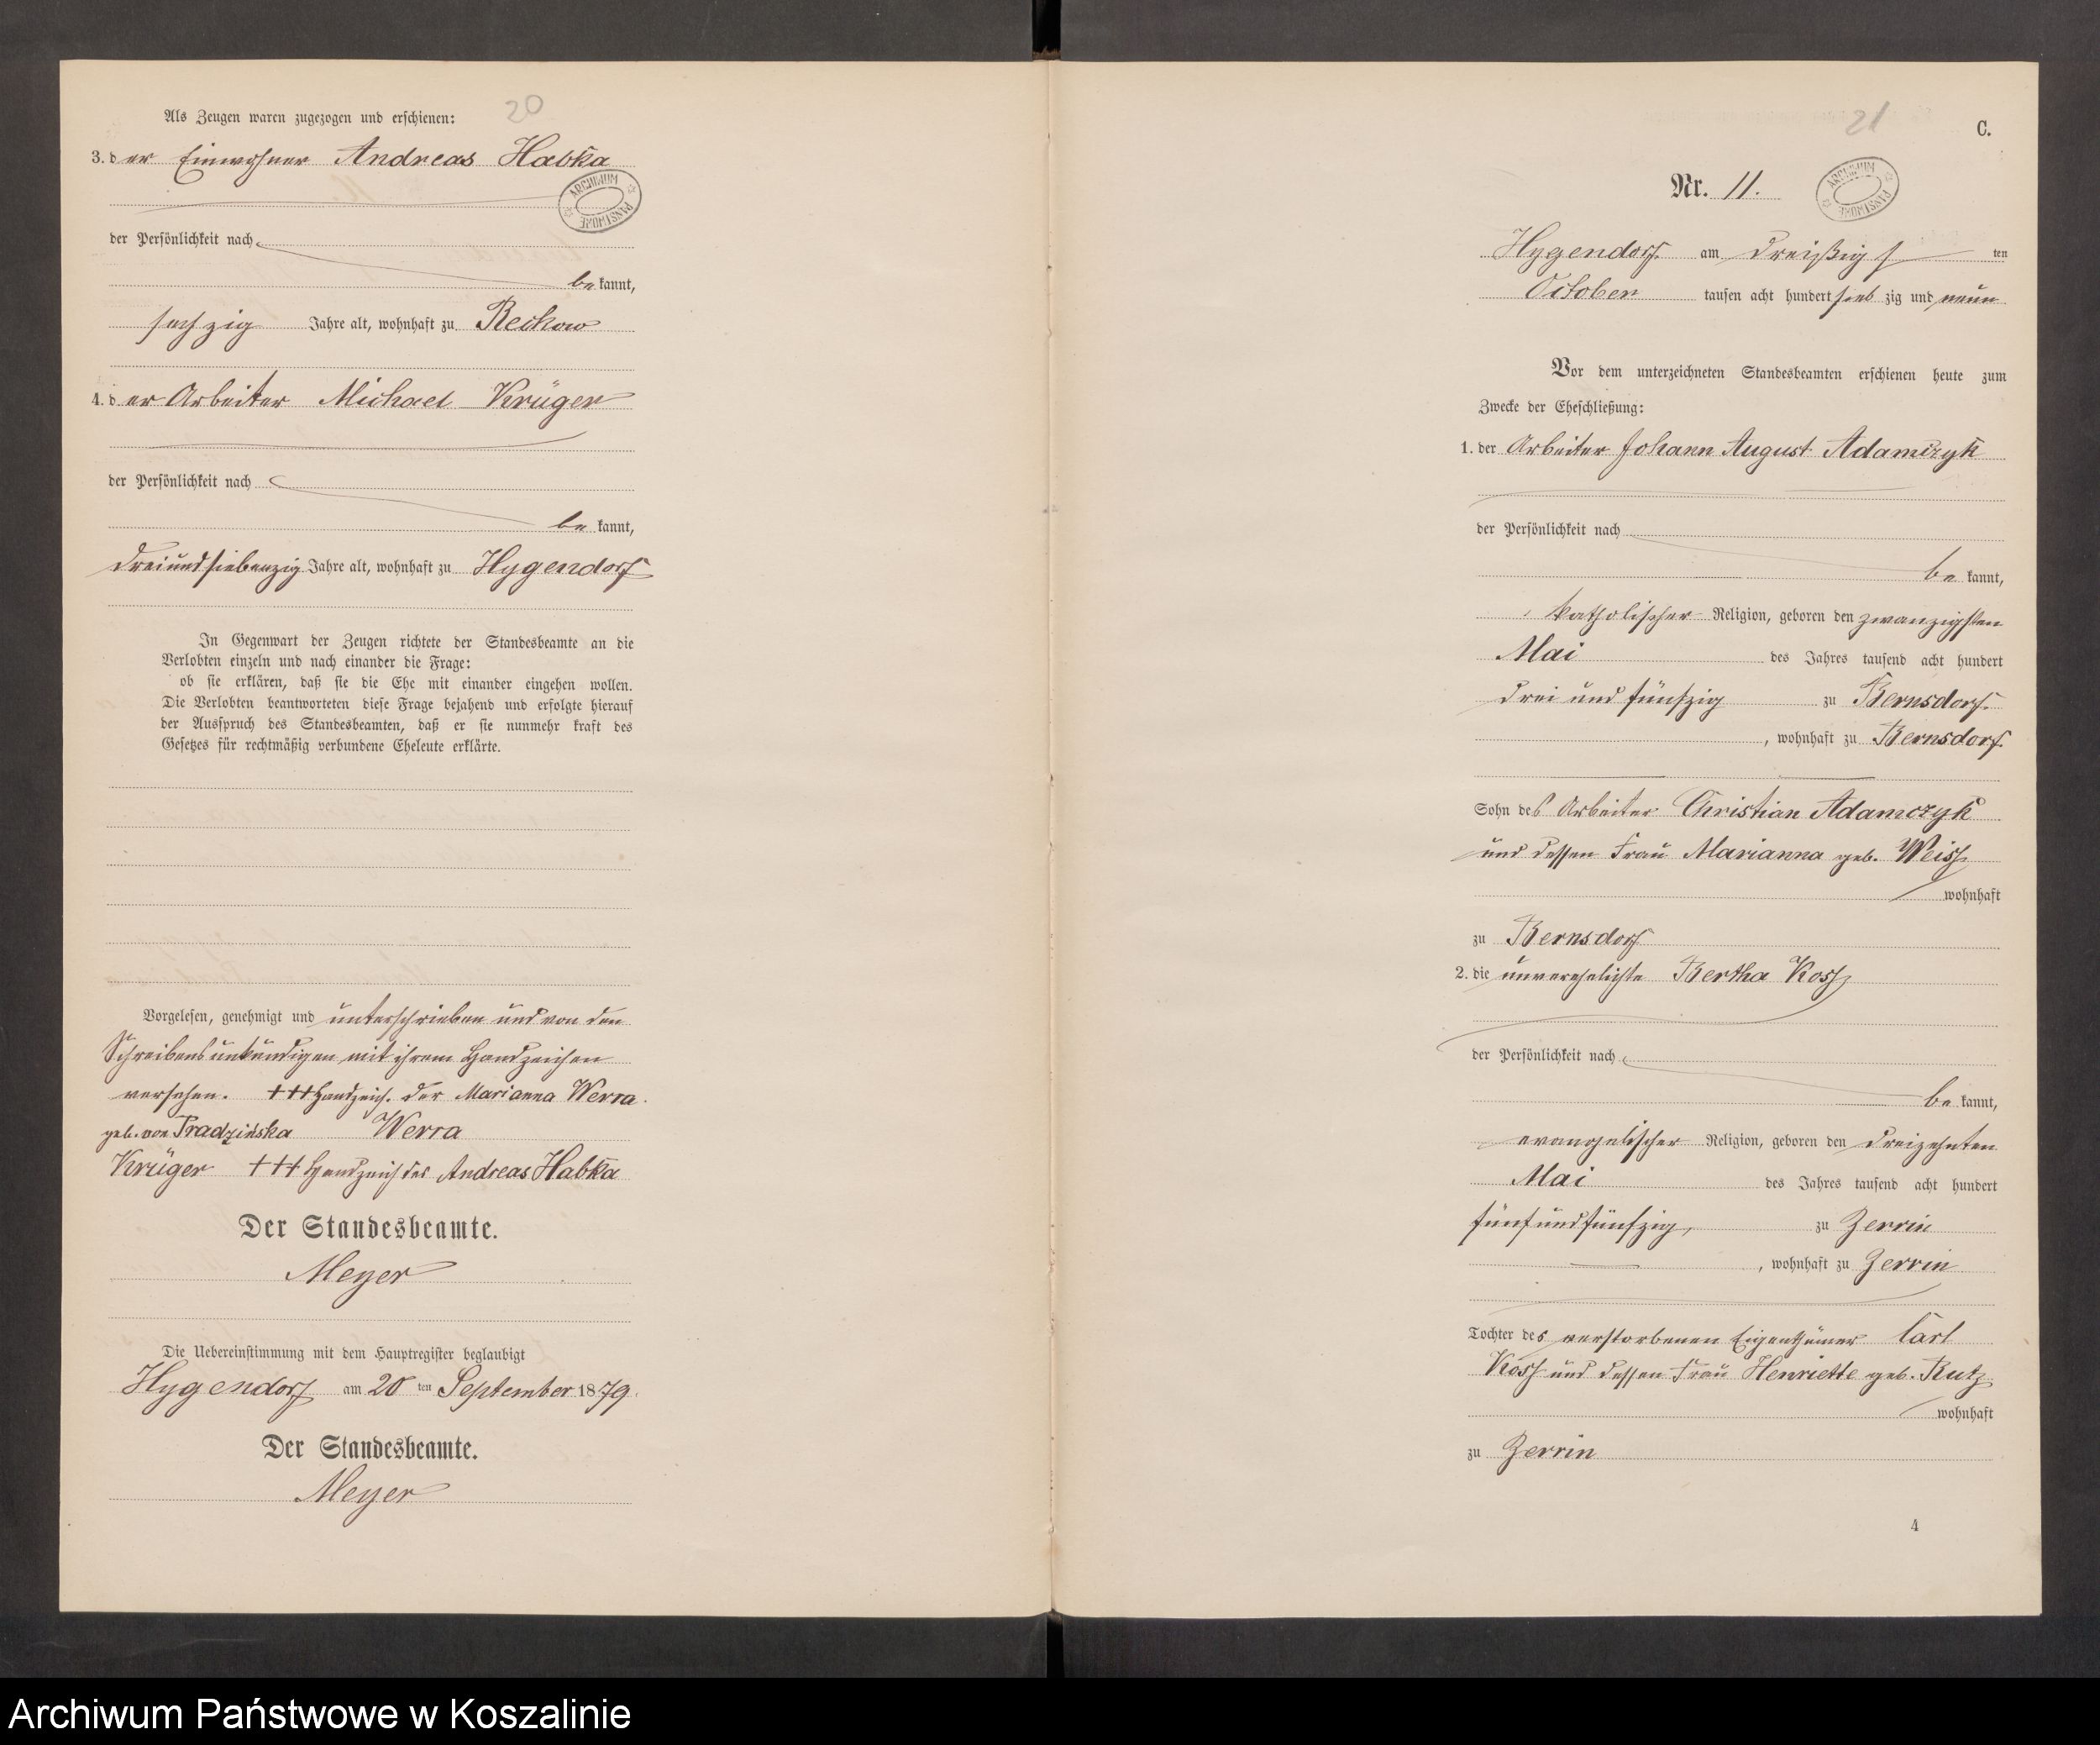 20
Als Zeugen waren zugezogen und erschienen:
3. der Einwohner Andreas Habka
ARCHIWUM PAŃSTWOWE
der Persönlichkeit nach
bekannt,
sechzig Jahre alt, wohnhaft zu Reckow
4. der Arbeiter Michael Krüger
der Persönlichkeit nach
bekannt,
dreiundsiebenzig Jahre alt, wohnhaft zu Hygendorf
In Gegenwart der Zeugen richtete der Standesbeamte an die
Verlobten einzeln und nach einander die Frage:
ob sie erklären, daß sie die Ehe mit einander eingehen wollen.
Die Verlobten beantworteten diese Frage bejahend und erfolgte hierauf
der Ausspruch des Standesbeamten, daß er sie nunmehr kraft des
Gesetzes für rechtmäßig verbundene Eheleute erklärte.
Vorgelesen, genehmigt und unterschrieben und von den
Schreibensunkundigen mit ihrem Handzeichen
versehen. +++ Handzeich. der Marianna Werra
geb. von Pradzińska Werra
Krüger +++ Handzeich des Andreas Habka
Der Standesbeamte.
Meyer
Die Uebereinstimmung mit dem Hauptregister beglaubigt
Hygendorf am 20ten September 1879.
Der Standesbeamte.
Meyer
21
C.
Nr. 11.
ARCHIWUM PAŃSTWOWE
Hygendorf am dreißigsten
October tausen acht hundert siebzig und neun
Vor dem unterzeichneten Standesbeamten erschienen heute zum
Zwecke der Eheschließung:
1. der Arbeiter Johann August Adamczyk
der Persönlichkeit nach
bekannt,
katholischer Religion, geboren den zwanzigsten
Mai des Jahres tausend acht hundert
drei und fünfzig zu Bernsdorf
, wohnhaft zu Bernsdorf
Sohn des Arbeiter Christian Adamczyk
und dessen Frau Marianna geb. Weiss
wohnhaft
zu Bernsdorf
2. die unverehelichte Bertha Koss
der Persönlichkeit nach
bekannt,
evangelischer Religion, geboren den dreizehnten
Mai des Jahres tausend acht hundert
fünfundfünfzig, zu Zerrin
, wohnhaft zu Zerrin
Tochter des verstorbenen Eigenthümer Carl
Koss und dessen Frau Henriette geb. Rutz
wohnhaft
zu Zerrin
4
Archiwum Państwowe w Koszalinie